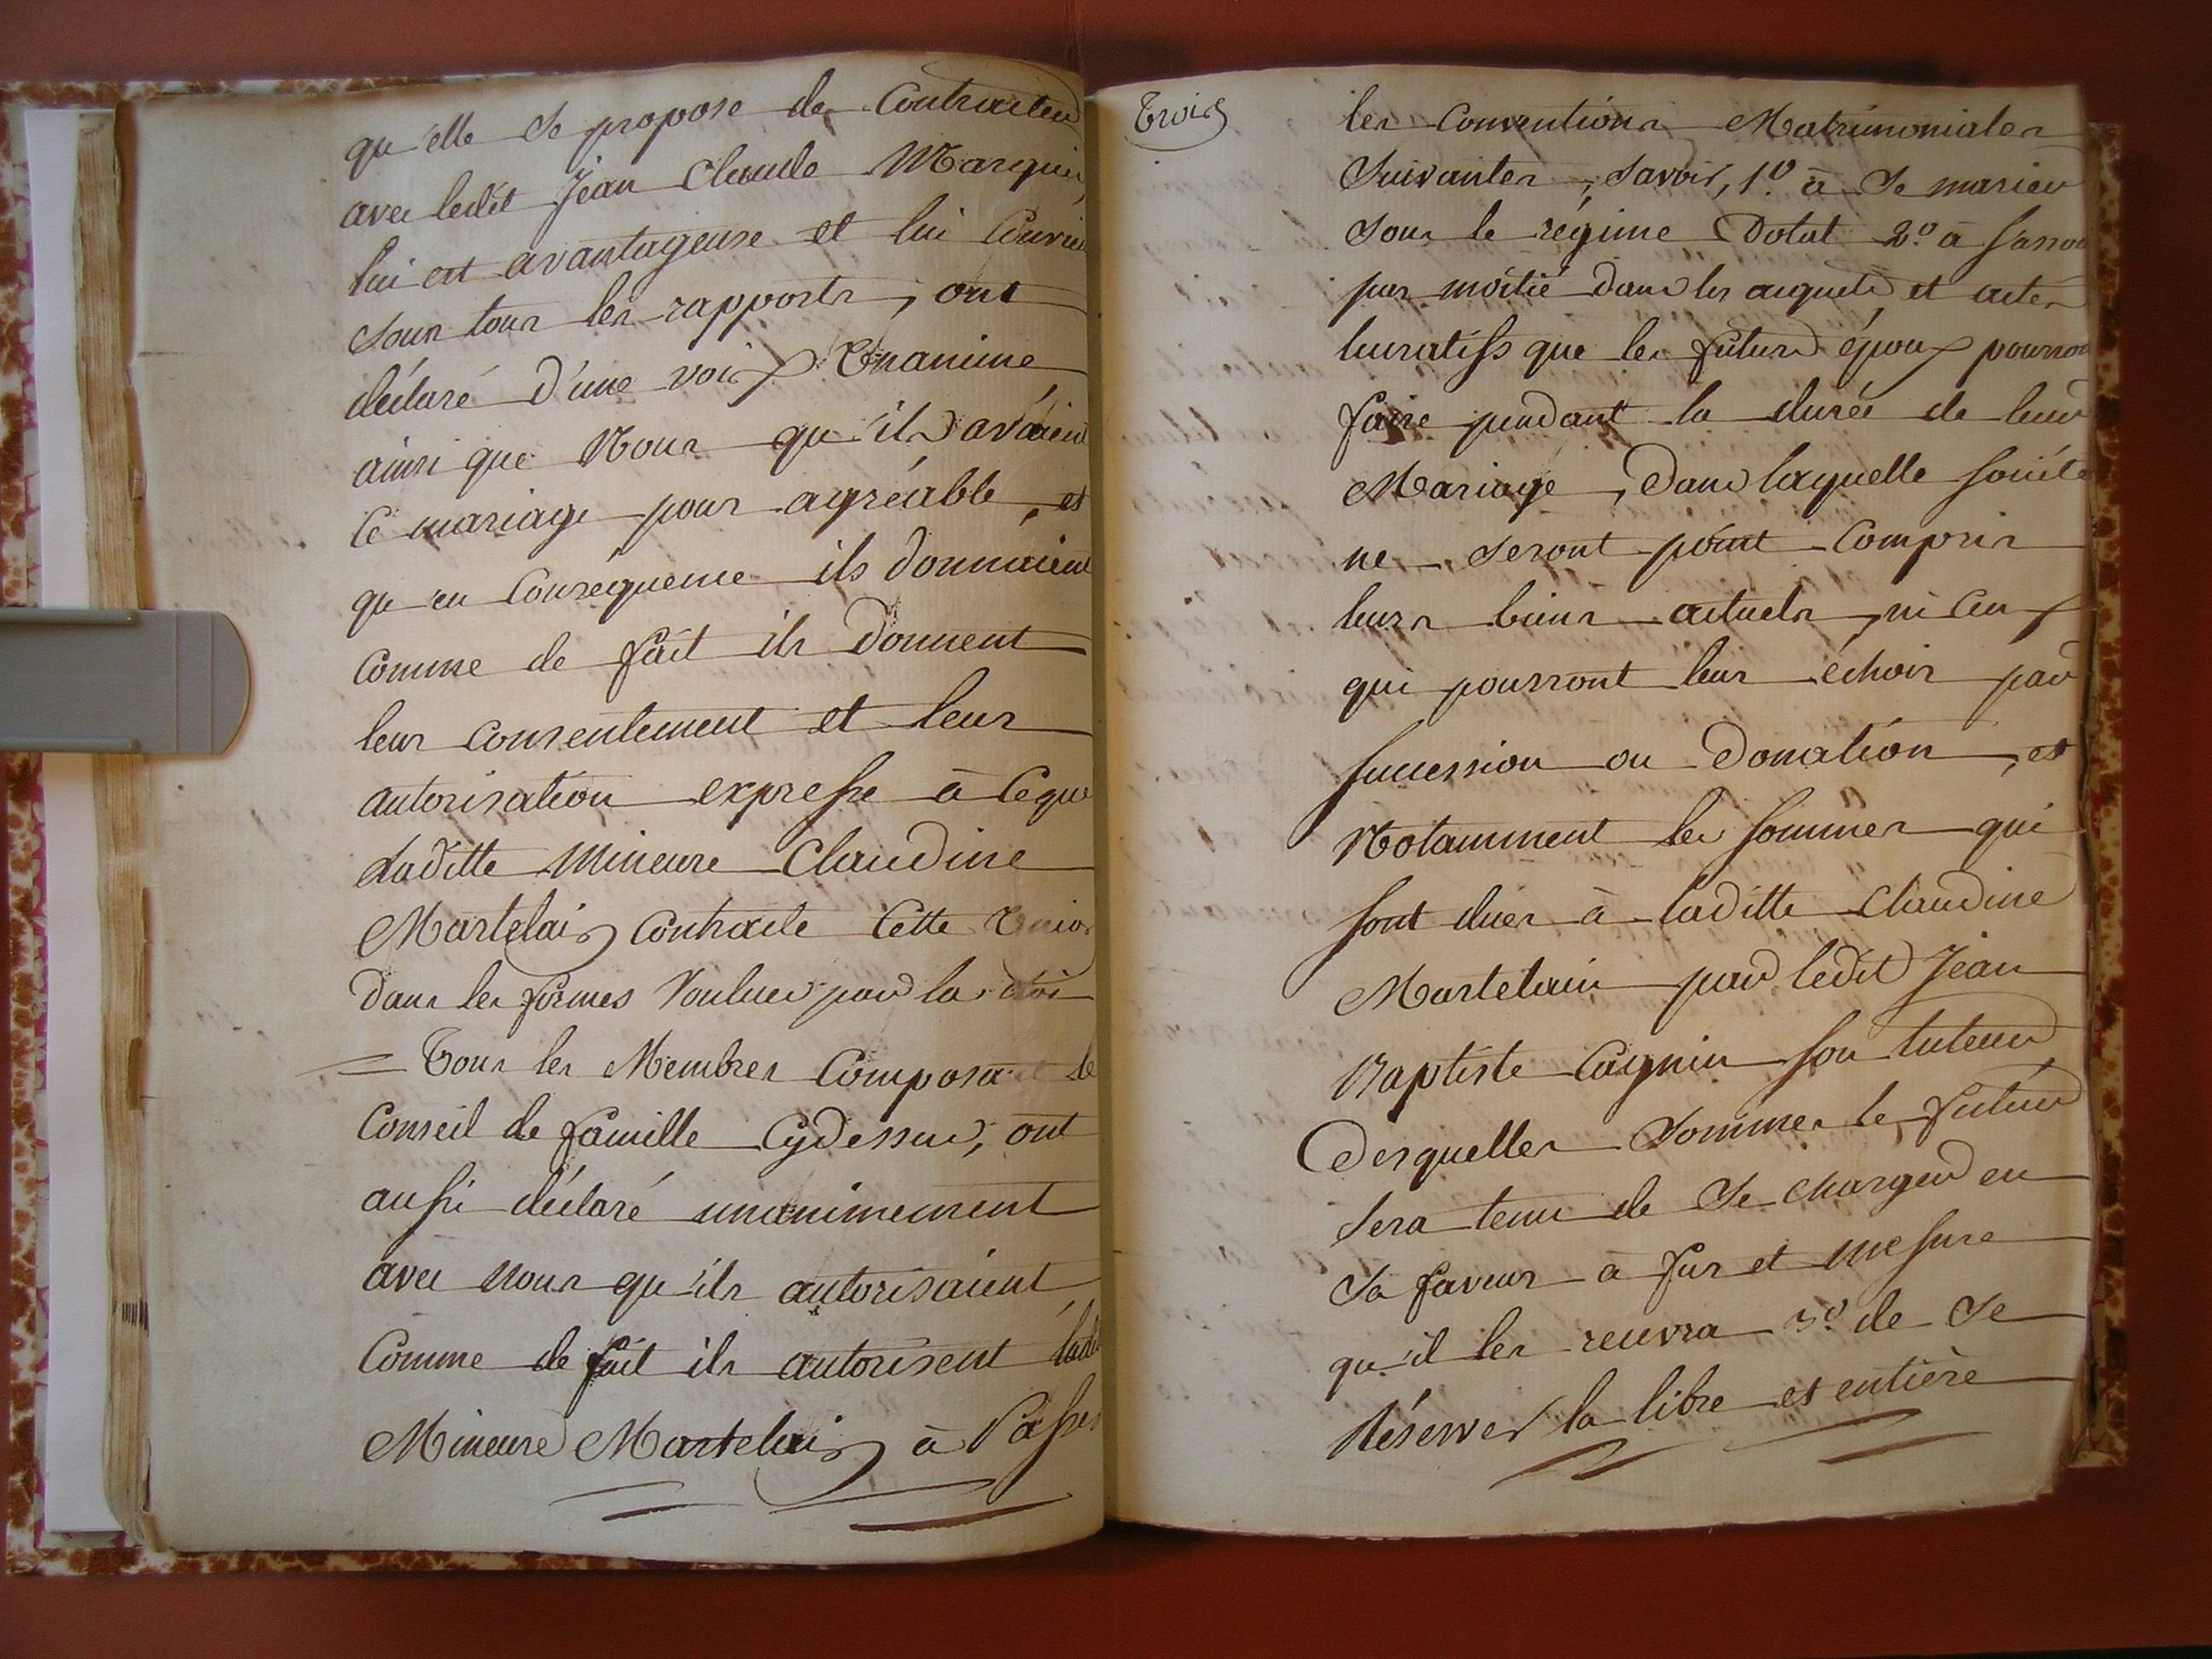 qu'elle se propose de Contracter
avec ledit Jean Claude Marquis,
lui est avantageuse et lui Convien
sous tous les rapports, ont
déclaré d'une voix Unanime
ainsi que Nous qu'ils avaient
Ce mariage pour agréable, et
qu'en Conséquence ils donnaient
Comme de fait ils Donnent
leur Consentement et leur
autorisation expresse à Ceque
Laditte Mineure Claudine
Martelais Contracte Cette Union
Dans les formes Voulues par la Loi
= Tous les Membres Composant le
Conseil de famille Cydessus, ont
aussi déclaré unanimement
avec Nous qu'ils autorisaient,
Comme de fait ils autorisent ladi
Mineure Martelais à Passer
Trois
les Conventions Matrimoniales
Suivantes, Savoir, 1.º à Se marier
Sous le régime Dotal 2.º à s'assoc
par moitié Dans les acquets et actes
lucratifs que les futurs époux pourron
faire pendant la durée de leur
Mariage, Dans laquelle société
ne Seront point Compris
leurs biens actuels, ni Ceux
qui pourront leur échoir par
succession ou Donation, et
Notamment les sommes qui
sont dues à laditte Claudine
Martelais par ledit Jean
Baptiste Cagnin son tuteur
Desquelles Sommes le futur
Sera tenu de Se charger en
Sa faveur à fur et mesure
qu'il les recevra 3.º de Se
Réserver la libre et entière